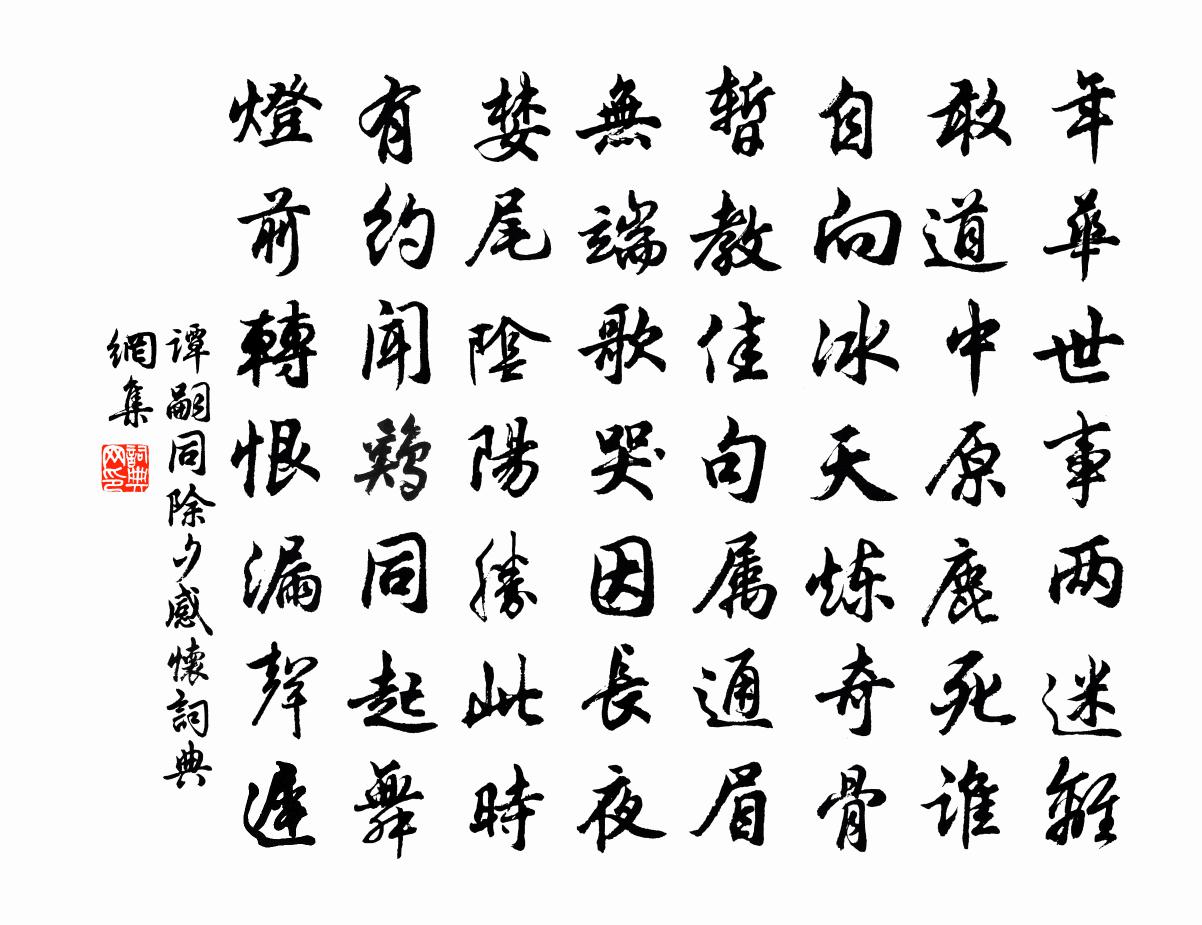 年華世事两迷離
敢道中原鹿死谁
自向冰天炼奇骨
暫教佳句属通眉
無端歌哭因長夜
婪尾陰陽勝此時
有約聞鷄同起舞
燈前轉恨漏聲遲
谭嗣同除夕感懷詞典
網集
詞典
网印